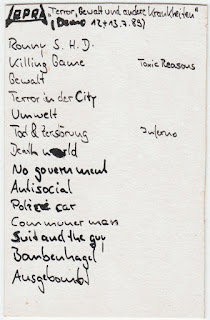 BPR „Terror, Gewalt und andere Krankheiten"
(Demo 12+13.7.89)
Ronny S.H.D.
Killing Game Toxic Reasons
Gewalt
Terror in der City
Umwelt
Tod & Zerstörung Inferno
Death world
No government
Antisocial
Police car
Communer man
Suit and the guy
Bombenhagel
Ausgebombt